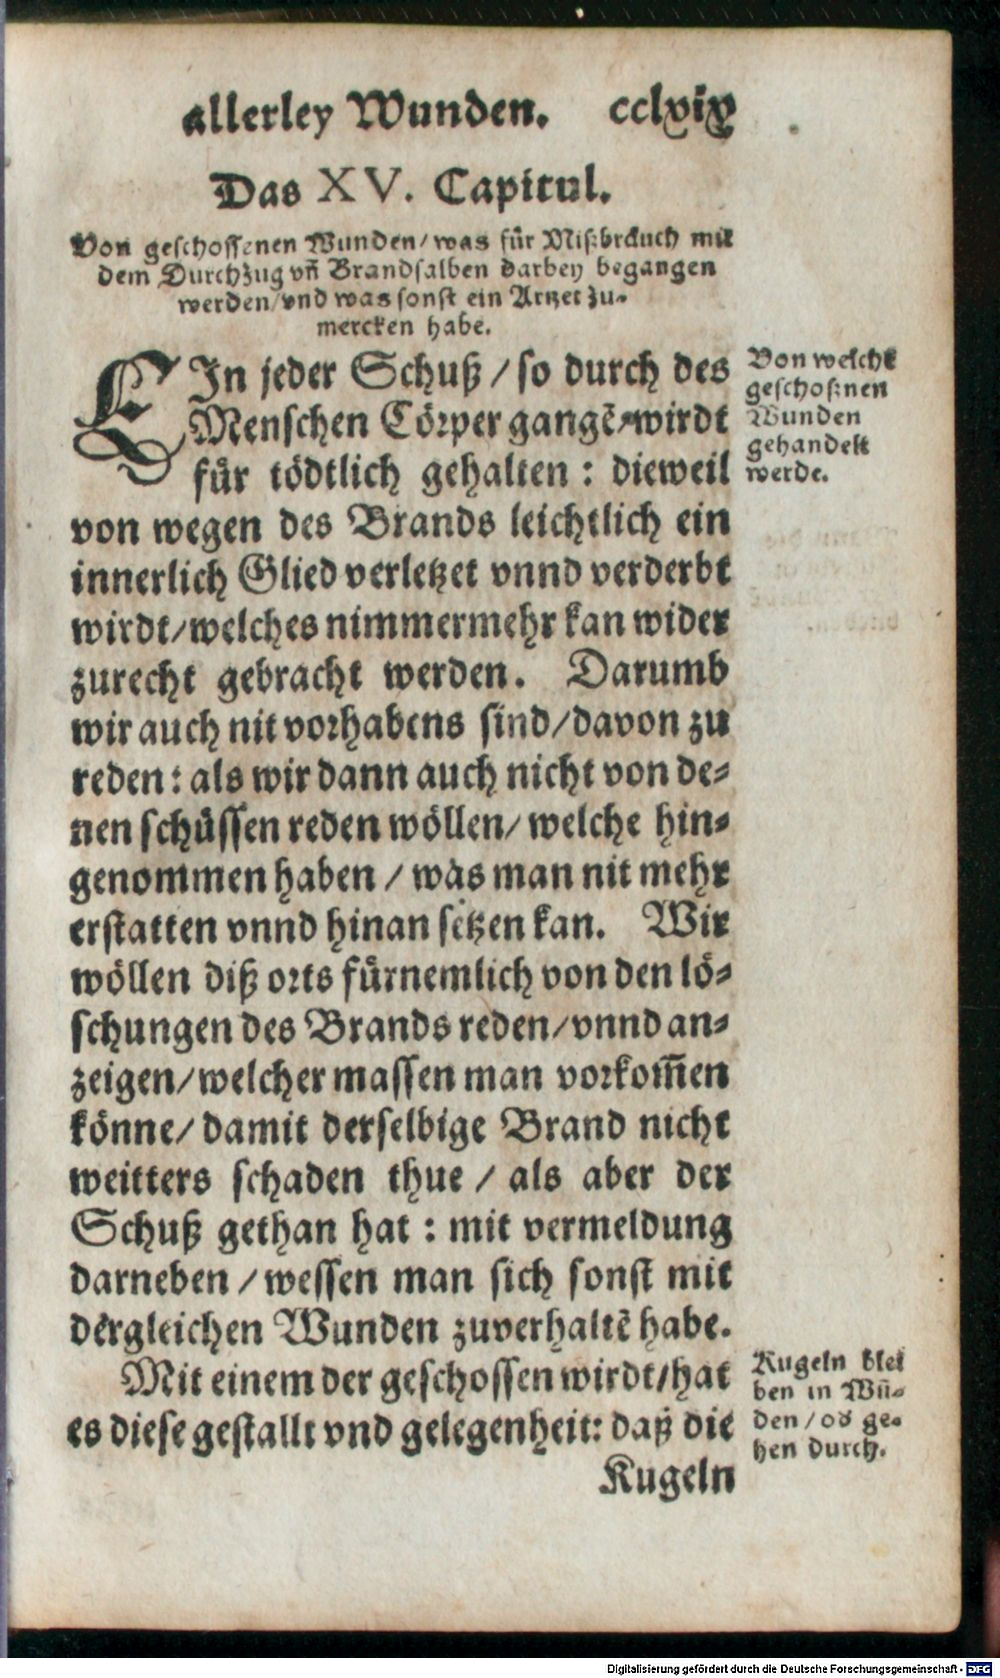 allerley Wunden. cclxix
Das XV. Capitul.
Von geschossenen Wunden/ was für Mißbräuch mit
dem Durchzug vñ Brandsalben darbey begangen
werden/ vnd was sonst ein Artzet zu-
mercken habe.
EIn jeder Schuß / so durch des
Menschen Cörper gangẽ/ wirdt
für tödtlich gehalten : dieweil
von wegen des Brands leichtlich ein
innerlich Glied verletzet vnnd verderbt
wirdt/ welches nimmermehr kan wider
zurecht gebracht werden. Darumb
wir auch nit vorhabens sind/ davon zu
reden : als wir dann auch nicht von de-
nen schüssen reden wöllen/ welche hin-
genommen haben / was man nit mehr
erstatten vnnd hinan setzen kan. Wir
wöllen diß orts fürnemlich von den lö-
schungen des Brands reden/ vnnd an-
zeigen/ welcher massen man vorkom̃en
könne/ damit derselbige Brand nicht
weitters schaden thue / als aber der
Schuß gethan hat : mit vermeldung
darneben / wessen man sich sonst mit
dergleichen Wunden zuverhaltẽ habe.
Mit einem der geschossen wirdt/ hat
es diese gestallt vnd gelegenheit: daß die
Kugeln
Von welche
geschoßnen
Wunden
gehandelt
werde.
Kugeln blei
ben in Wũ-
den / od ge-
hen durch.
Digitalisierung gefördert durch die Deutsche Forschungsgemeinschaft - DFG